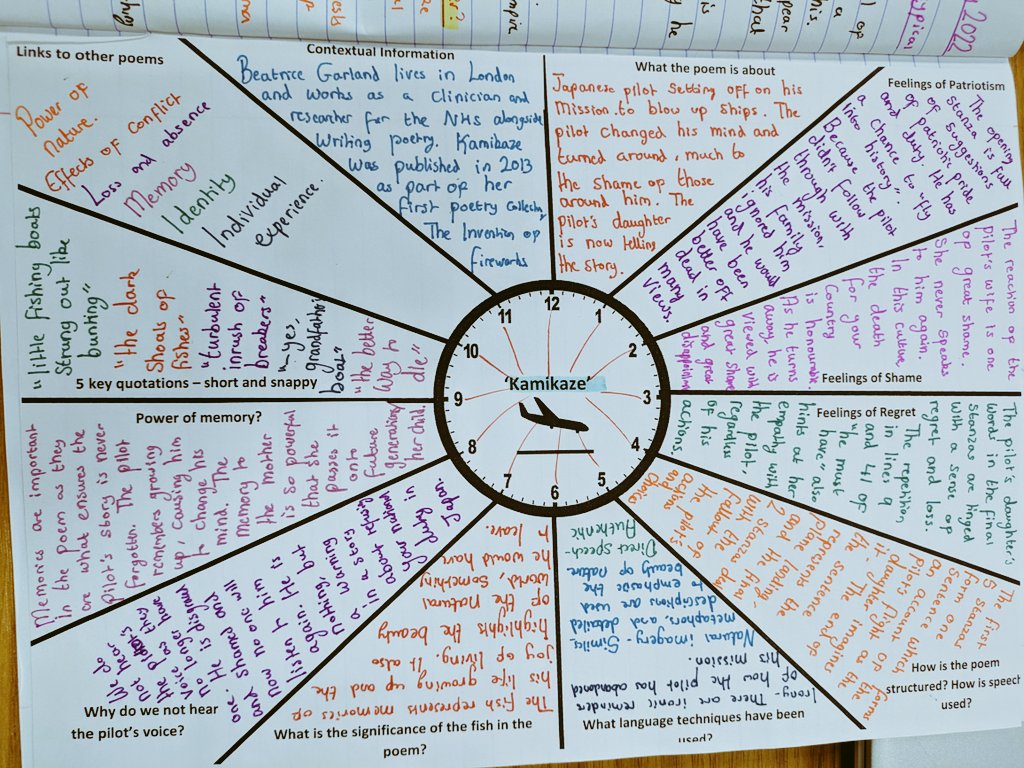 Links to other poems
Power of
Nature.
Effects of Conflict
Loss and absence
Memory
Identity
Individual
experience.
Contextual Information
Beatrice Garland lives in London
and works as a Clinician and
researcher for the NHS alongside
Writing poetry. Kamikaze
was published in 2013
as part of her
first poetry collection,
The Invention of
fireworks
What the poem is about
Japanese pilot setting off on his
mission to blow up ships. The
pilot changed his mind and
turned around, much to
the shame of those
around him. The
pilot's daughter
is now telling
the story.
Feelings of Patriotism
The opening
stanza is full
of suggestions
of Patriotic pride
and duty. He has
a chance to "fly
into history".
Because the pilot
didn't follow
through with
the mission,
his family
ignored him
and he would
have been
better off
dead in
many
views.
Feelings of Shame
The reaction of the
pilot's wife is one
of great shame.
She never speaks
to him again.
In this culture
the death
for your
Country
is honourable
As he turns
away, he is
viewed with
great shame
and great
Feelings of Regret
The pilot's daughter's
words in the final
stanzas are tinged
with a sense of
regret and loss.
The repetition,
in lines 9
and 41 of
"he must
have" also
hints at her
empathy with
the pilot,
regardless
of his
actions.
How is the poem
structured? How is speech
used?
The first
5 stanzas
form one
sentence which
are account of
pilot's flight
as the
daughter
it. The end of
the sentence
represents the
plane landing,
and the final
2 stanzas deal
with the
fallout of
the pilot's
actions
and choice
What language techniques have been
used?
Irony - There are ironic reminders
of how the pilot has abandoned
his mission.
Natural imagery - Similes
metaphors, and detailed
descriptions are used
to emphasise the
beauty of nature.
Direct speech-
Authentic
What is the significance of the fish in the
poem?
The fish represents memories of
his life growing up and the
joy of living. It also
highlights the beauty
of the natural
world, something
he would have
to leave.
Why do we not hear
the pilot's voice?
We do
not hear
the pilot's
voice as they
no longer have
one. He is disgraced
and shamed and
now no one will
listen to him
again. He is
nothing, but
a warning
in a story
about refusing
your national
duty in
Japan.
Power of memory?
Memories are important
in the poem as they
are what ensures the
pilot's story is never
forgotten. The pilot
remembers growing
up, causing him
to change his
mind. The
memory to
the mother
is so powerful
that she
passes it
onto
future
generations
her child.
5 key quotations – short and snappy
"little fishing boats
Strung out like
bunting"
"the dark
shoals of
fishes"
"turbulent
inrush of
breakers"
"-yes,
grandfather's
boat"
"the better
way to
die"
'Kamikaze'
12
1
2
3
4
5
6
7
8
9
10
11
2022
typical